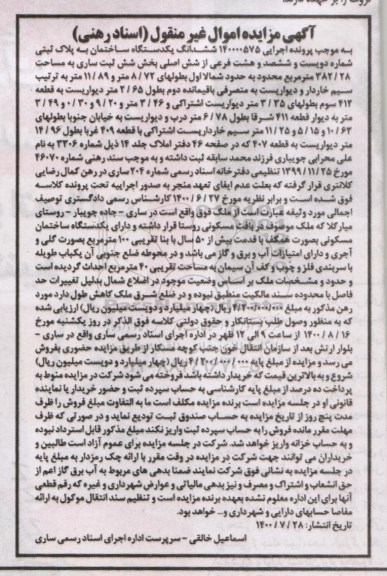 آگهی مزایده اموال غیر منقول (اسناد رهنی)
به موجب پرونده اجرایی ۱۴۰۰۰۰۵۷۵ ششدانگ یکدستگاه ساختمان به پلاک ثبتی
شماره دویست و ششصد و هشت فرعی از شش اصلی بخش شش ثبت ساری به مساحت
۳۸۲/۲۸ مترمربع محدود به حدود شمالا اول بطولهای ۸/۷۲ متر و ۱۱/۸۹ متر به ترتیب
سیم خاردار و دیواریست به متصرفی باقیمانده دوم بطول ۲/۶۵ متر دیواریست به قطعه
۴۱۲ سوم بطولهای ۳/۳۵ متر دیواریست اشتراکی و ۳/۴۶ متر و ۹/۲۰ و ۰/۳۰ و ۳/۴۹
متر به دیوار قطعه ۴۱۱ شرقا بطول ۶/۷۸ متر درب و دیواریست به خیابان جنوبا بطولهای
۱۰/۶۳ و ۵/۱۵ و ۱۱/۲۵ متر سیم خارداریست اشتراکی با قطعه ۴۰۹ غربا بطول ۱۴/۹۶
متر دیواریست به قطعه ۴۰۷ که در صفحه ۴۶ دفتر املاک جلد ۱۴ ذیل شماره ۳۳۰۶ به نام
علی محرابی جویباری فرزند محمد سابقه ثبت داشته و به موجب سند رهنی شماره ۴۶۰۷۰
مورخ ۱۳۹۹/۱۱/۲۵ تنظیمی دفترخانه اسناد رسمی شماره ۲۰۴ ساری در رهن کمال رضایی
کلانتری قرار گرفته که بعلت عدم ایفای تعهد منجر به صدور اجراییه تحت پرونده کلاسه
فوق شده است و برابر نظریه مورخ ۱۴۰۰/۶/۲۷ کارشناس رسمی دادگستری توصیف
اجمالی مورد وثیقه عبارت است از ملک فوق واقع است در ساری - جاده جویبار - روستای
میارکلا که ملک موصوف در بافت مسکونی روستا قرار داشته و دارای یکدستگاه ساختمان
مسکونی بصورت همکف با قدمت بیش از ۵۰ سال با بنا تقریبی ۱۰۰ مترمربع بصورت گلی و
آجری و دارای امتیازات آب و برق و گاز می باشد و در محوطه ضلع جنوبی آن یکباب طویله
با سربندی فلز و چوب و کف آن سیمان به مساحت تقریبی ۴۰ مترمربع احداث گردیده است
و حدود و مشخصات ملک بر اساس وضعیت موجود در اضلاع شمال بدلیل تغییرات حد
فاصل با محدوده سند مالکیت منطبق نبوده و در ضلع شرق ملک کاهش طول دارد مورد
رهن مذکور به مبلغ ۴/۲۰۰/۰۰۰/۰۰۰ ریال (چهار میلیارد و دویست میلیون ریال) ارزیابی شده
که به منظور وصول طلب بستانکار و حقوق دولتی کلاسه فوق الذکر در روز یکشنبه مورخ
۱۴۰۰/۸/۱۶ از ساعت ۹ الی ۱۲ ظهر در اداره اجرای اسناد رسمی ساری واقع در ساری -
بلوار ارتش بعد از سازمان انتقال خون جنب کوچه مسکار از طریق مزایده حضوری بفروش
می رسد و مزایده از مبلغ پایه ۴/۲۰۰/۰۰۰/۰۰۰ ریال (چهار میلیارد و دویست میلیون ریال)
شروع و به بالاترین قیمت که خریدار داشته باشد فروخته می شود شرکت در مزایده منوط به
پرداخت ده درصد از مبلغ پایه کارشناسی به حساب سپرده ثبت و حضور خریدار یا نماینده
قانونی او در جلسه مزایده است برنده مزایده مکلف است ما به التفاوت مبلغ فروش را ظرف
مدت پنج روز از تاریخ مزایده به حساب صندوق ثبت تودیع نماید و در صورتی که ظرف
مهلت مقرر مانده فروش را به حساب سپرده ثبت واریز نکند مبلغ مذکور قابل استرداد نبوده
و به حساب خزانه واریز خواهد شد. شرکت در جلسه مزایده برای عموم آزاد است طالبین و
خریداران می توانند جهت شرکت در مزایده در وقت مقرر با ارائه چک رمزدار به مبلغ پایه
در جلسه مزایده به نشانی فوق شرکت نمایند ضمنا بدهی های مربوط به آب برق گاز اعم از
حق انشعاب و اشتراک و مصرف و نیز بدهی مالیاتی و عوارض شهرداری و غیره که رقم قطعی
آنها برای این اداره معلوم نشده بعهده برنده مزایده است و تنظیم سند انتقال موکول به ارائه
مفاصا حسابهای دارایی و شهرداری و... خواهد بود.
تاریخ انتشار: ۱۴۰۰/۷/۲۸
اسماعیل خالقی - سرپرست اداره اجرای اسناد رسمی ساری